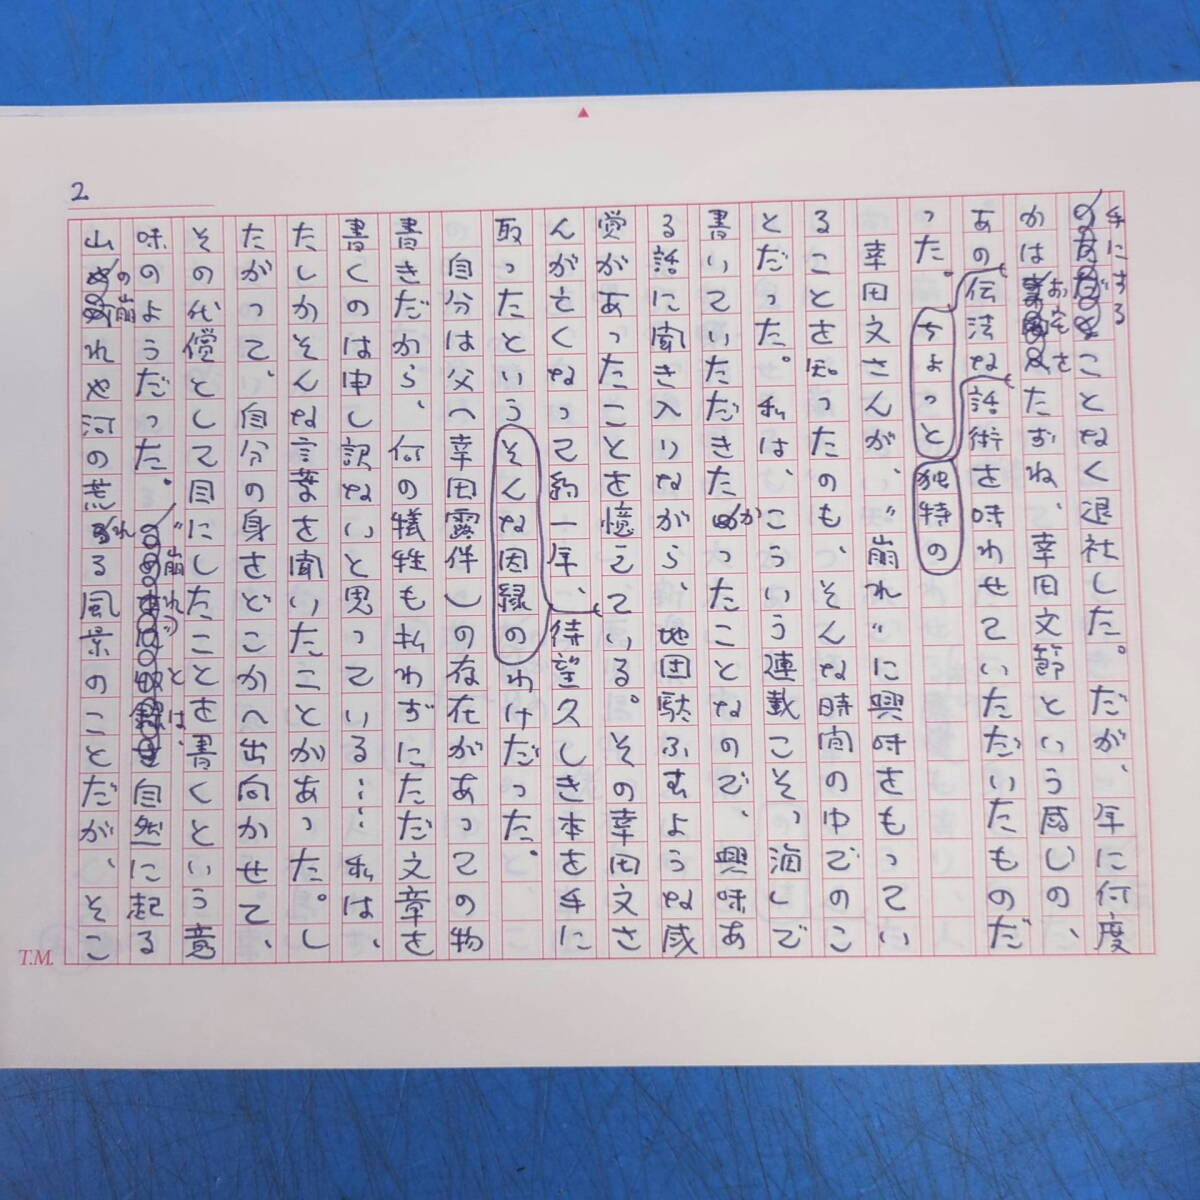 2
手にすることなく退社した。だが、年に何度
かはお宅をたずね、幸田文節という感じの、
あの伝法な話術を時わせていただいたものだ
った。ちょっと独特の
幸田文さんが、〝崩れ〟に興味をもってい
ることを知ったのも、そんな時間の中でのこ
とだった。私は、こういう連載こそ、海しで
書いていただきたかったことなので、興味あ
る話に聞き入りながら、地団駄ふむような感
覚があったことを憶えている。その幸田文さ
んが亡くなって約一年、待望久しき本を手に
取ったというそんな因縁のわけだった。
自分は父へ幸田露伴しの存在があっての物
書きだから、何の犠牲も払わずにただ文章を
書くのは申し訳ないと思っている……私は、
たしかそんな言葉を聞いたことがあった。し
たがって、自分の身をどこかへ出向かせて、
その代償として目にしたことを書くという意
味のようだった。〝崩れ〟とは、自然に起る
山の崩れや河の荒れる風景のことだが、そこ
T.M.